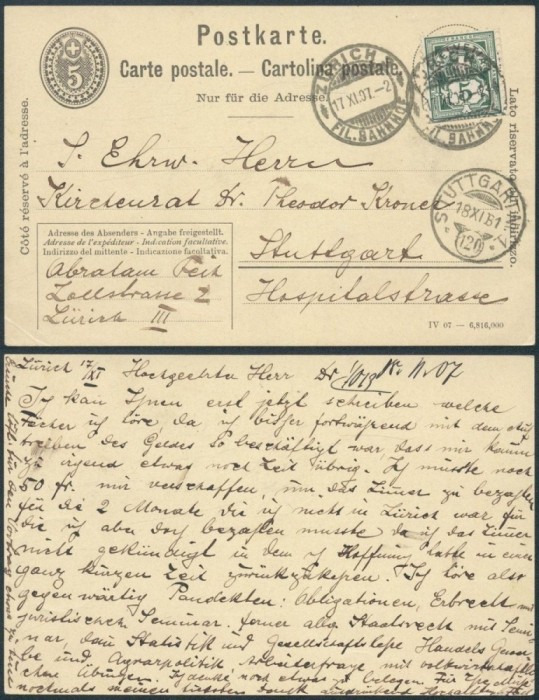 Postkarte.
Carte postale. — Cartolina postale.
Nur für die Adresse.
Côté réservé à l'adresse.
Lato riservato all'indirizzo.
5
ZÜRICH
17.XI.07.-2
FIL. BAHNHOF
FIL. BAHNHOF
5
STUTTGART
18 XI 81
120
S. Ehrw. Herrn
Kirchenrat Dr. Theodor Kroner
Stuttgart
Hospitalstrasse
Adresse des Absenders - Angabe freigestellt.
Adresse de l'expéditeur - Indication facultative.
Indirizzo del mittente - Indicazione facultativa.
Abraham
Zollstrasse 2
Zürich III
IV 07 — 6,816,000
Zürich 17/XI Hochgeehrter Herr Dr 18. 11. 07
Ich kan Ihnen erst jetzt schreiben welche
Fächer ich höre, da ich bisher fortwährend mit dem auf
treiben des Geldes so beschäftigt war, dass mir kaum
zu irgend etwas noch Zeit übrig. Ich musste noch
50 fr. mir verschaffen, um das Zimer zu bezahlen
für die 2 Monate die ich nicht in Zürich war, für
die ich aber doch bezahlen musste da ich das Zimer
nicht gekündigt in dem ich Hoffnung hatte in einer
ganz kurzen Zeit zurückzukehren. Ich höre also
gegenwärtig Pandekten: Obligationen, Erbrecht
juristischen Seminar. ferner alle Staatsrecht mit Semi
nar, dann Statistik und Gesellschaftslehre Handels
und Agrarpolitik Arbeiterfrage mit volkswirtschaftli
chen Übungen. Ich gedenke noch etwas zu belegen. Für
nochmals meinen